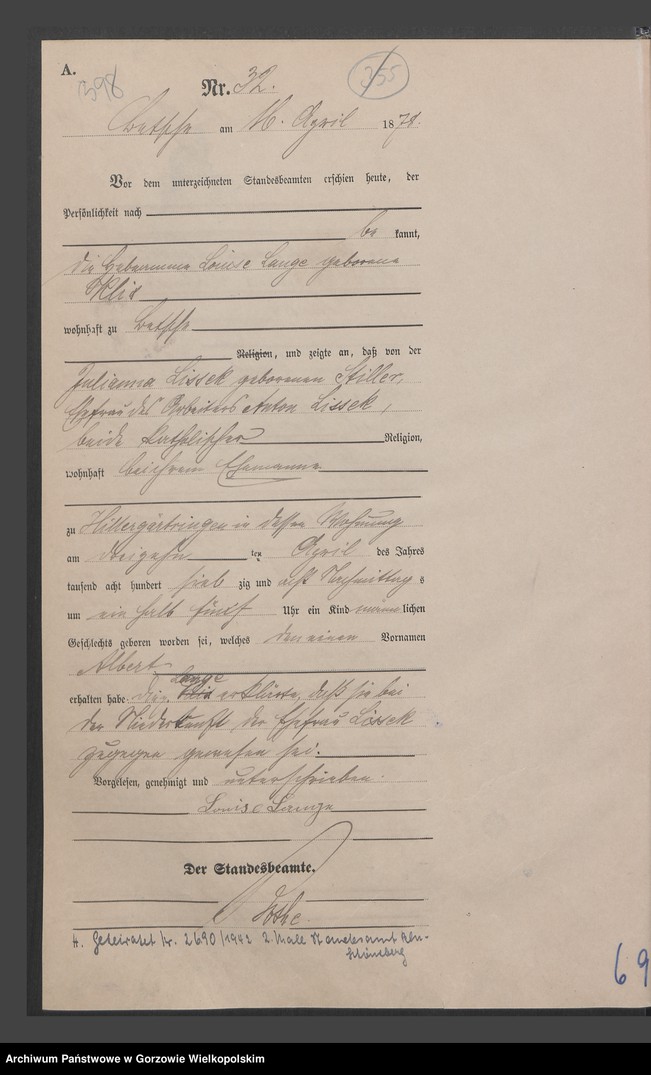 A.
398
Nr. 32.
355
Betsche am 16. April 1878.
Vor dem unterzeichneten Standesbeamten erschien heute, der
Persönlichkeit nach
be kannt,
die Hebamme Louise Lange geborene
Klix
wohnhaft zu Betsche
Religion, und zeigte an, daß von der
Julianna Lissek geborenen Stiller,
Ehefrau des Arbeiters Anton Lissek,
beide katholischer Religion,
wohnhaft bei ihrem Ehemanne
zu Hillergärtringen in dessen Wohnung
am dreizehn ten April des Jahres
tausend acht hundert sieb zig und acht Nachmittag s
um ein halb fünf Uhr ein Kind männ lichen
Geschlechts geboren worden sei, welches den einen Vornamen
Albert
Lange
erhalten habe. Die Klix erklärte, daß sie bei
der Niederkunft der Ehefrau Lissek
zugegen gewesen sei.
Vorgelesen, genehmigt und unterschrieben.
Louise Lange
Der Standesbeamte.
H. Geheiratet Nr. 2690/1942 2. Male Standesamt Bln-
Schöneberg
69
Archiwum Państwowe w Gorzowie Wielkopolskim